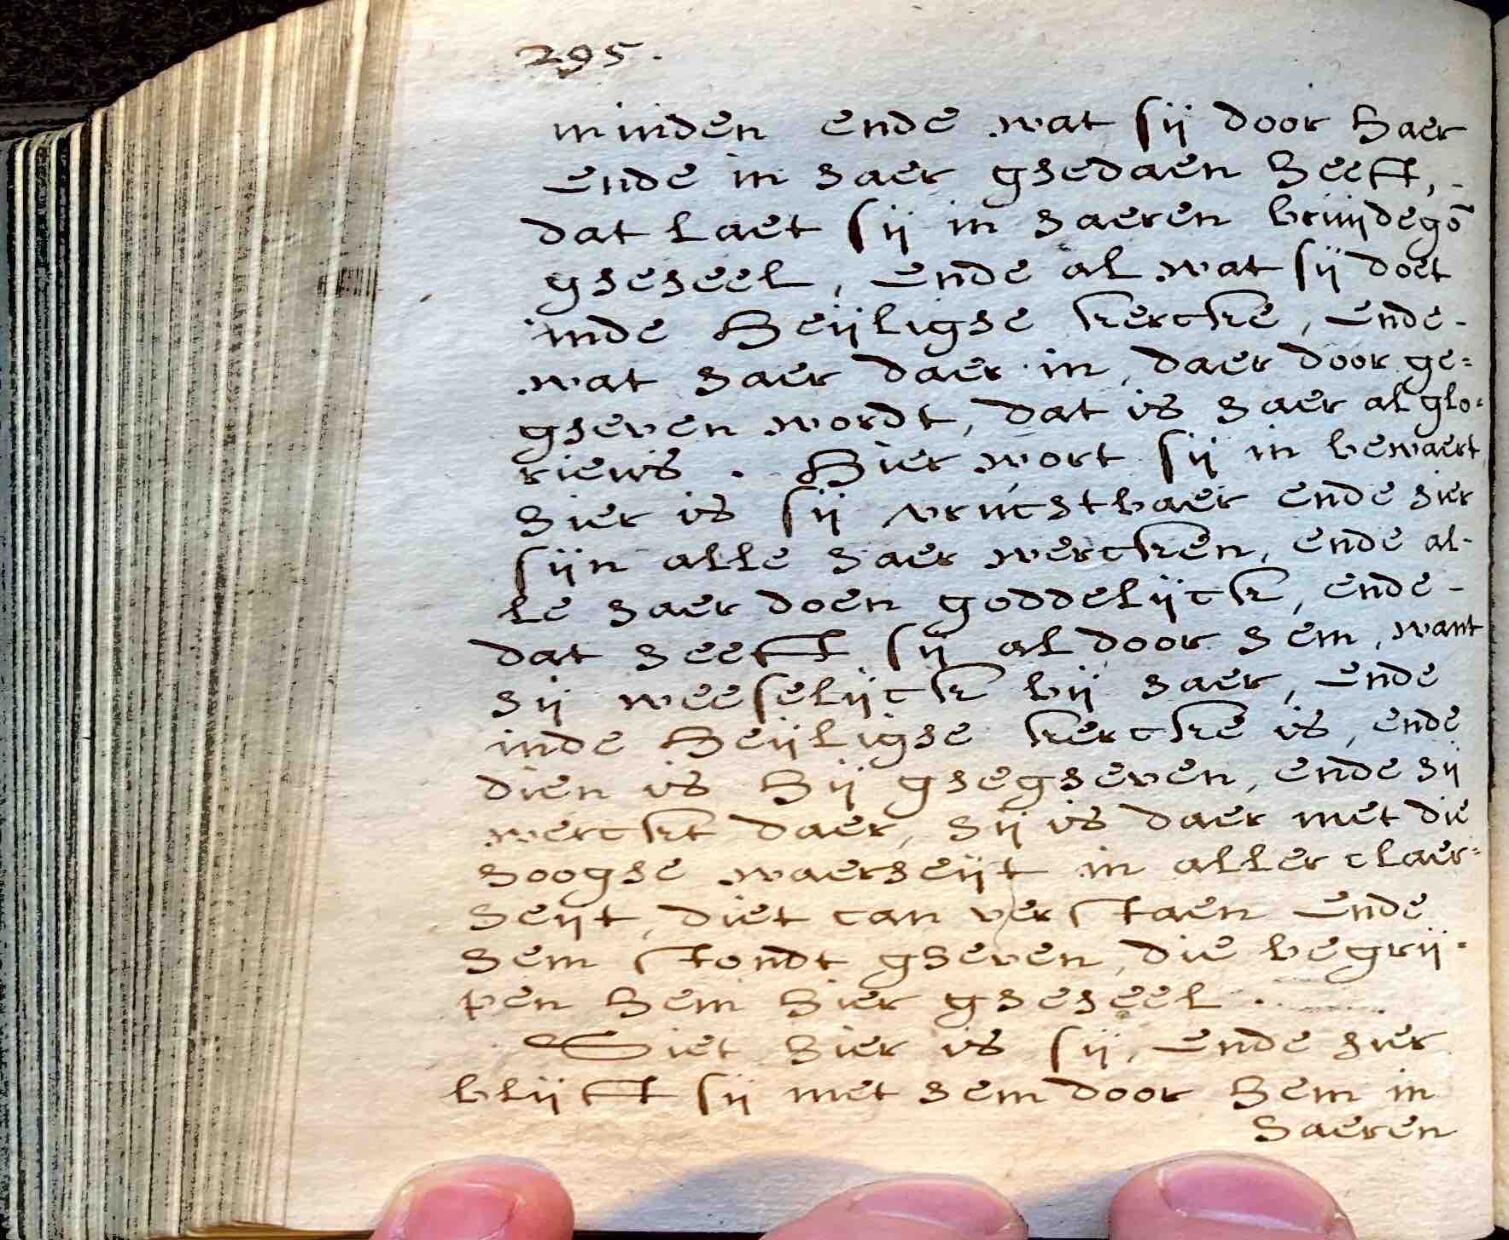 295.
minden ende wat sij door haer
ende in haer ghedaen heeft,
dat laet sij in haeren bruijdegõ
gheheel, ende al wat sij doet
inde heijlighe kercke, ende-
wat haer daer in, daer door ge=
gheven wordt, dat is haer al glo=
rieus. Hier wort sij in bewaert
hier is sij vruchtbaer ende hier
sijn alle haer wercken, ende al-
le haer doen goddelijck, ende-
dat heeft sij al door hem, want
hij weeselijck bij haer, ende
inde heijlighe kercke is, ende
dien is hij ghegheven, ende hij
werckt daer, hij is daer met die
hooghe waerheijt in aller claer=
heijt, diet can verstaen ende
hem stondt gheven, die begrij=
pen hem hier gheheel.
Siet hier is sij, ende hier
blijft sij met hem door hem in
haeren